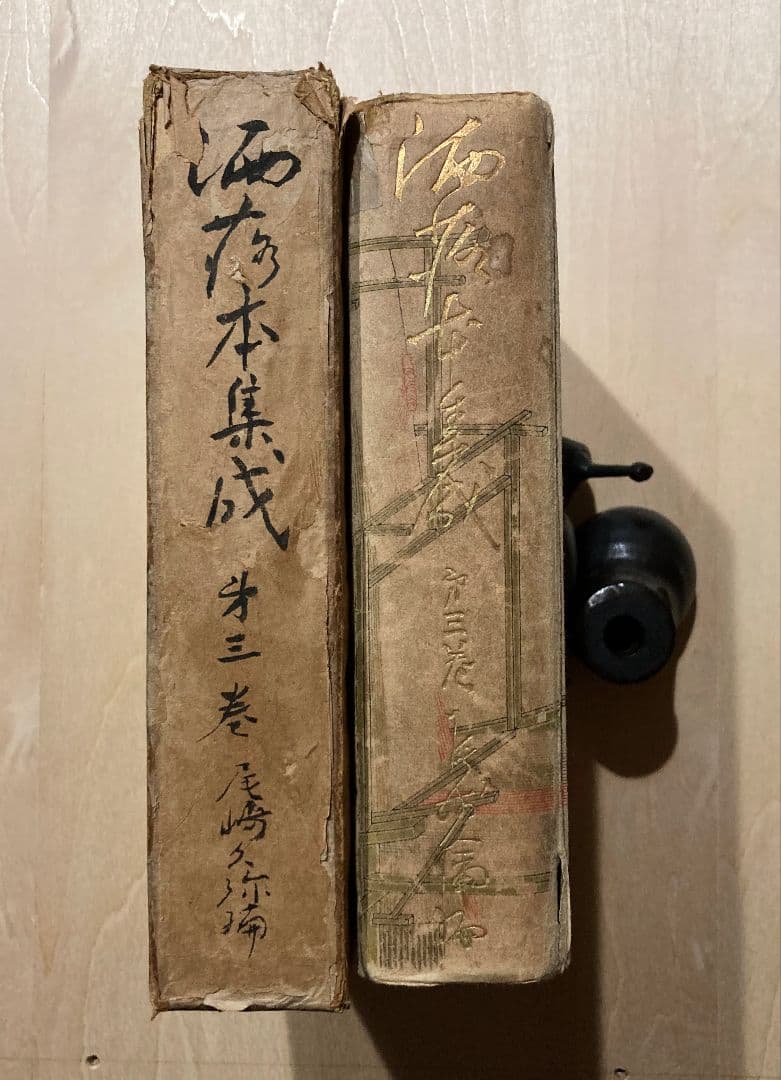 洒落本集成 第三巻
洒落本集成 第三巻 尾崎久弥編